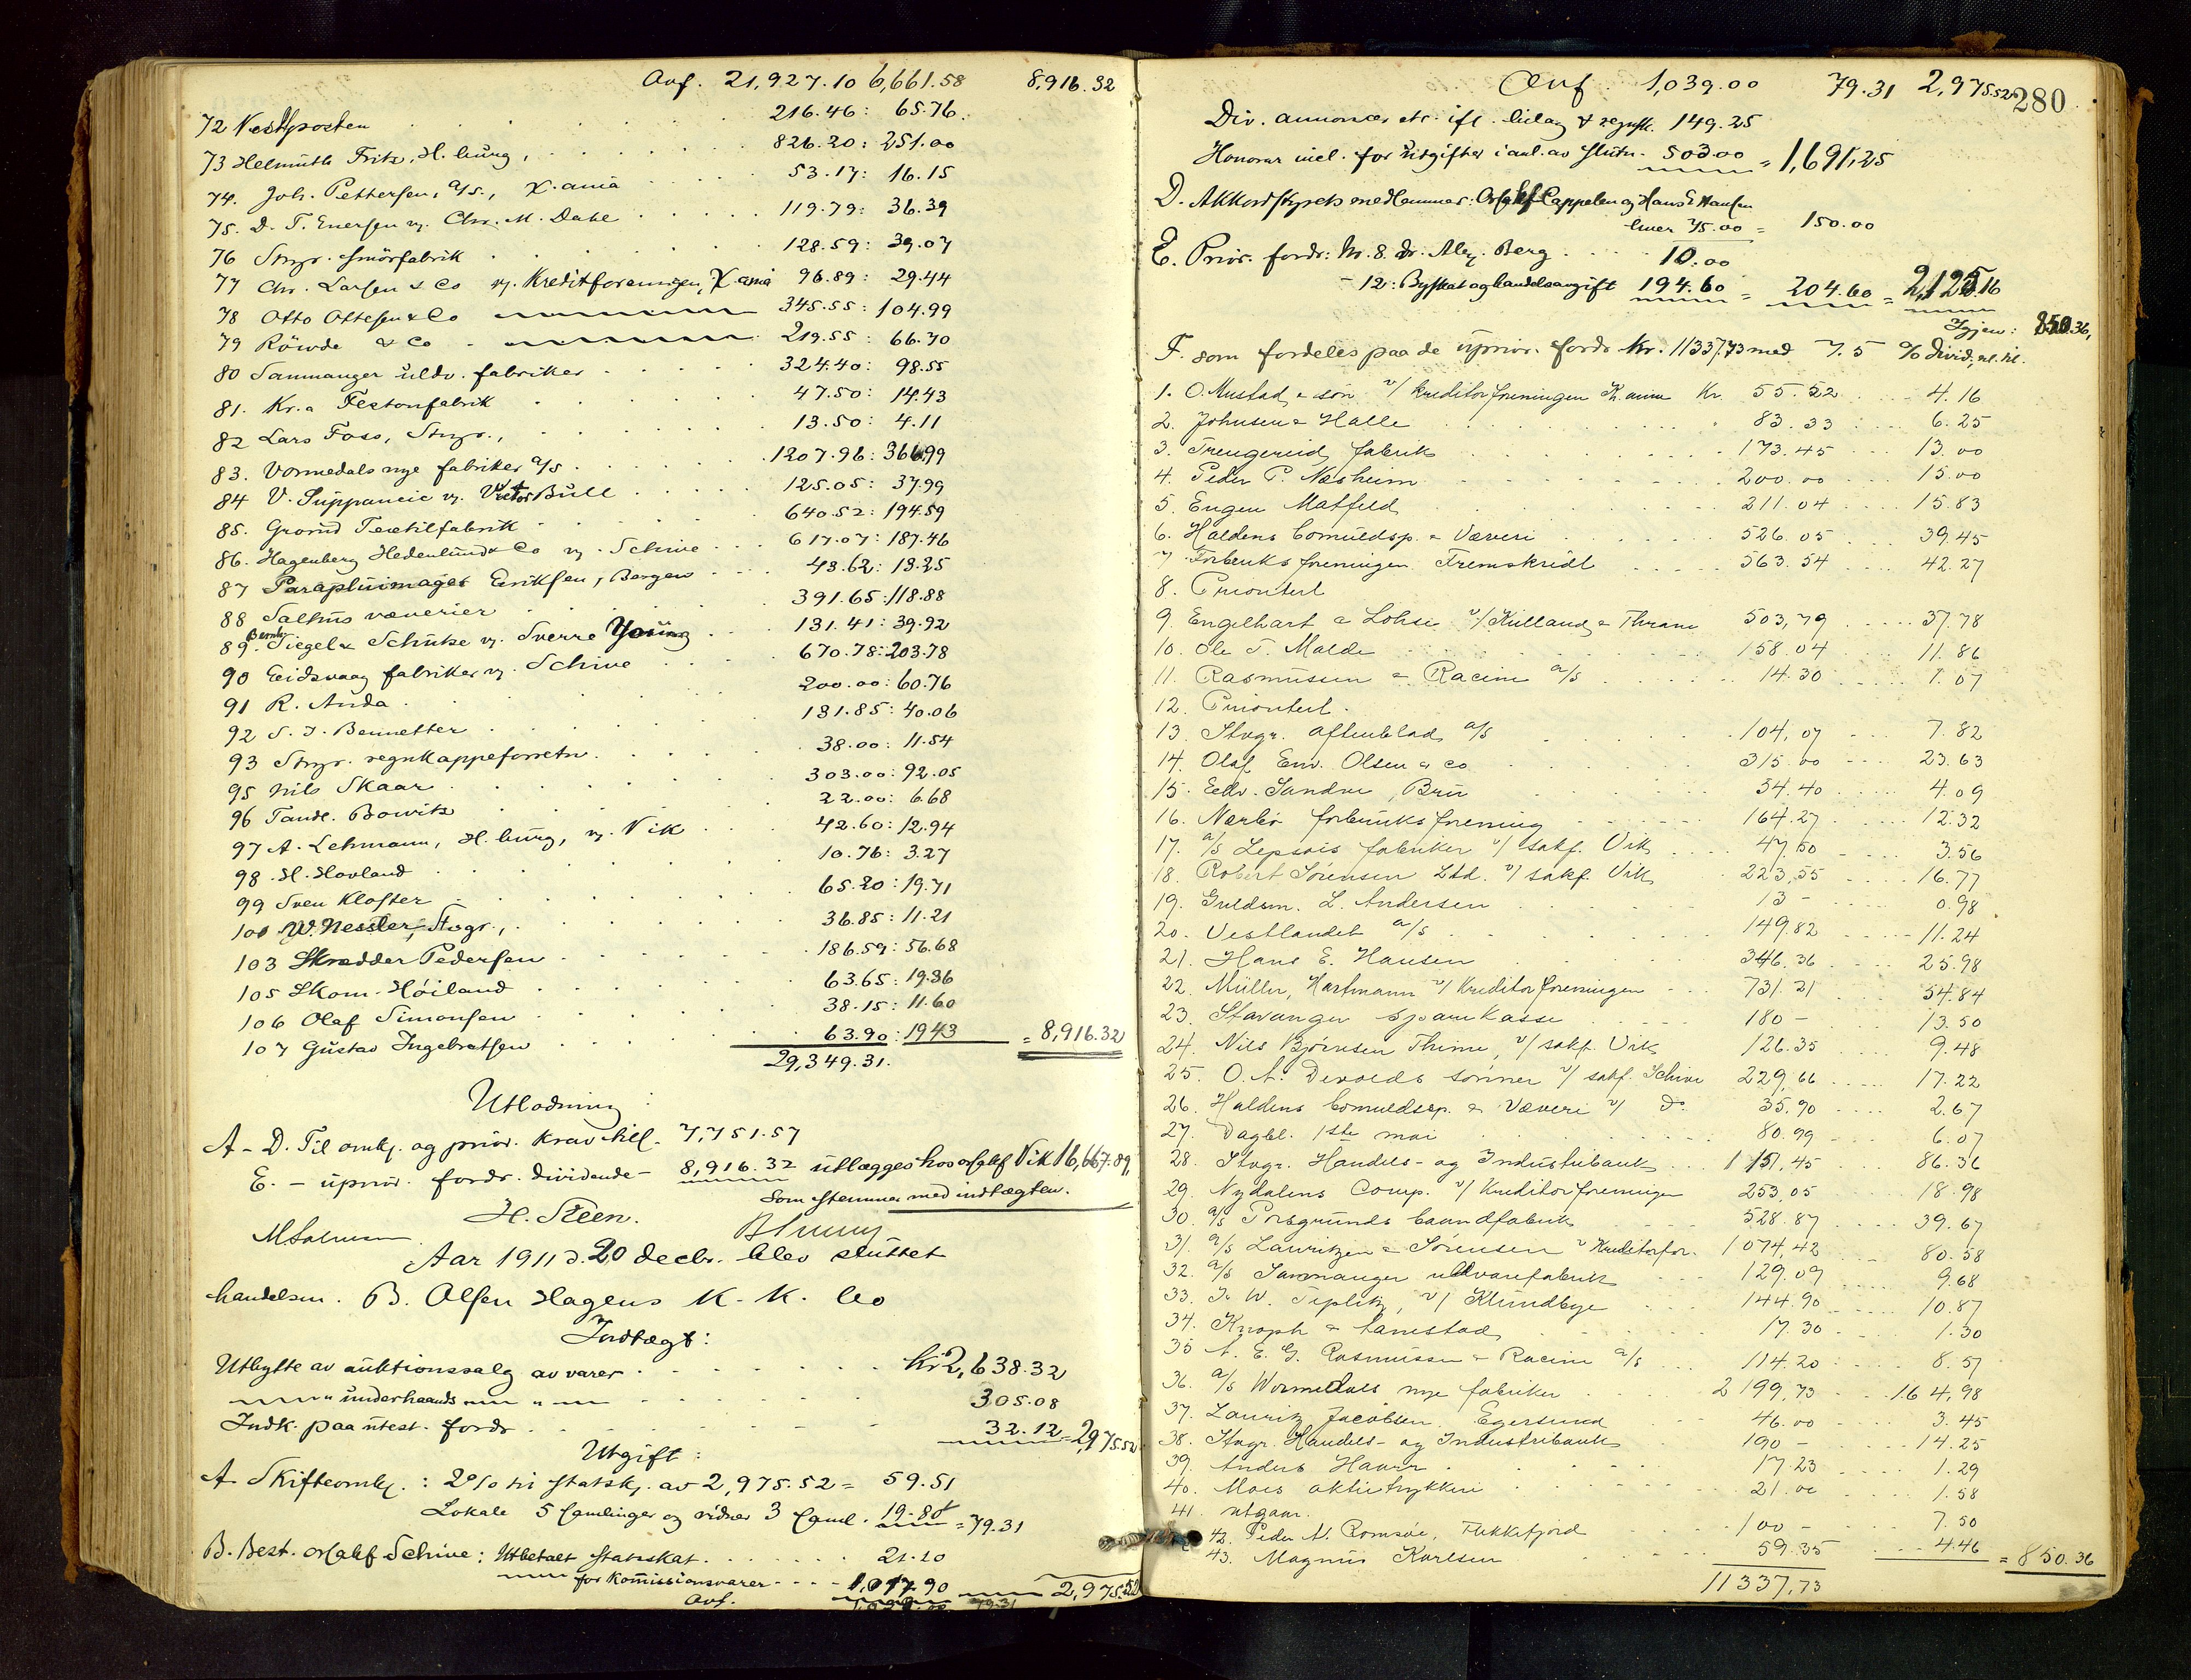 Ovf. 21,927.10 6,661.58 8,916.32
72 Vestlposten 216.46: 65.76.
73 Helmuth Fritz, H.burg, 826.20: 251.00
74. Joh. Pettersen, a/s., X.ania 53.17: 16.15
75. D. T. Enersen v. Chr. M. Dahl 119.79: 36.39
76 Stvgr. smörfabrik 128.59: 39.07
77 Chr. Larsen & Co v. Kreditforeningen, X.ania 96.89: 29.44
78 Otto Ottesen & Co 345.55: 104.99
79 Röwde & Co 219.55: 66.70
80 Sammanger uldv. fabriker 324.40: 98.55
81. Kr.a Festonfabrik 47.50: 14.43
82 Lars Foss, Stvgr., 13.50: 4.11
83. Vormedals nye fabriker a/s 1207.96: 366.99
84 V. Suppancic v. Victor Bull 125.05: 37.99
85. Grorud Textilfabrik 640.52: 194.59
86. Hagenberg Hedenlund & Co v. Schive 617.07: 187.46
87 Parapluimages Eriksen, Bergen 43.62: 13.25
88 Salhus væverier 391.65: 118.88
89. Bernh. Siegel & Schütze v. Sverre Young 131.41: 39.92
90 Eidsvaag fabriker v. Schive 670.78: 203.78
91 R. Anda 200.00: 60.76
92 S. J. Bennetter 131.85: 40.06
93 Stvgr. regnkappeforretn. 38.00: 11.54
95 Nils Skaar 303.00: 92.05
96 Tandl. Bowitz 22.00: 6.68
97 A. Lehmann, H.burg, v. Vik 42.60: 12.94
98. H. Hovland 10.76: 3.27
99 Sven Kloster 65.20: 19.71
100 W. Nessler, Stvgr., 36.85: 11.21
103 Skrædder Pedersen 186.59: 56.68
105 Skom. Höiland 63.65: 19.36
106 Olaf Simonsen 38.15: 11.60
107 Gustav Ingebretsen 63.90: 19.43 = 8,916.32
29,349.31.
Utlodning:
A - D. Til omk. og prior. krav till. 7,751.57
E. - uprior. fordr. dividende - 8,916.32 utlægges hos o/sakf Vik 16,667.89,
som stemmer med indtægten.
H. Steen.
Aar 1911 d. 20 decbr. blev sluttet
handelsm. B. Olsen Hagens K. K. bo
Indtægt:
Utbytte av auktionssalg av varer kr 2,638.32
" underhaands " 305.08
Indk. paa utest. fordr 32.12 = 2,975.52
Utgift:
A Skifteomk.: 2% til statsk. av 2,975.52 = 59.51
Lokale 5 samlinger og vidner 3 saml. 19.80 = 79.31
B. Best. o/sakf Schive: Utbetalt statsskat. 21.10
for Komissionsvarer 1,017.90 2,975.52
Ovf.
Ovf 1,039.00 79.31 2,975.52 280
Div. annonser etc. ifl. bilag & regnsk. 149.25
Honorar incl. for utgifter i anl. av slutn. 503.00 = 1,691.25
D. Akkordstyrets medlemmer: O/sakf Cappelen og Hans E Hansen
hver 75.00 = 150.00
E. Prior. fordr: Nr. 8. Dr. Alex. Berg 10.00
- 12: Byskat og handelsavgift 194.60 = 204.60 = 2,125.16
Igjen: 850.36,
F. som fordeles paa de uprior. fordr kr. 11337.73 med 7.5 % divid.,
1. O. Mustad & søn v/ kreditorforeningen K.ania Kr. 55.52 4.16
2. Johnsen & Halle 83.33 6.25
3. Trengereid fabrik 173.45 13.00
4. Peder P. Næsheim 200.00 15.00
5. Eugen Matfeld 211.04 15.83
6. Haldens bomuldsp. & Væveri 526.05 39.45
7. Forbruksforeningen Fremskridt 563.54 42.27
8. Prioritert
9. Engelhart & Lohse v/ Kielland & Thrane 503,79 37.78
10. Ole T. Malde 158.04 11.86
11. Rasmussen & Racine a/s 14.30 1.07
12. Prioritert.
13. Stvgr. aftenblad a/s 104,07 7.82
14. Olaf Env. Olsen & co 315.00 23.63
15. Edv. Sandve, Bru 54.40 4.09
16. Nærbø forbruksforening 164.27 12.32
17. a/s Lepsøis fabriker v/ sakf. Vik 47.50 3.56
18. Robert Sørensen Ltd. v/ sakf. Vik 223,55 16.77
19. Guldsm. L. Andersen 13 - 0.98
20. Vestlandet a/s 149.82 11.24
21. Hans E. Hansen 346.36 25.98
22. Müller, Hartmann v/ Kreditorforeningen 731.21 54.84
23. Stavanger sparekasse 180 - 13.50
24. Nils Bjørnsen Thime, v/ sakf. Vik 126.35 9.48
25. O. A. Devolds sønner v/ sakf. Schive 229,66 17.22
26. Haldens bomuldssp. & Væveri v/ do 35.90 2.67
27. Dagbl. 1ste mai 80.99 6.07
28. Stvgr. Handels- og Industribank 1151,45 86.36
29. Nydalens Comp. v/ Kreditorforeningen 253.05 18.98
30. a/s Porsgrunds baandfabrik 528.87 39.67
31. a/s Lauritzen & Sørensen v Kreditorfor. 1074,42 80.58
32. a/s Sammanger uldvarefabrik 129.09 9.68
33. J. W. Teplitz, v/ Klundbye 144.90 10.87
34. Knoph & Lanestad 17.30 1.30
35 A. E. G. Rasmussen & Racine a/s 114.20 8.57
36. a/s Wormedals nye fabriker 2199,73 164,98
37. Lauritz Jacobsen Egersund 46.00 3.45
38. Stvgr. Handels- og Industribank 190 - 14.25
39. Anders Haarr 17.23 1.29
40. Mois aktietrykkeri 21.00 1.58
41. utgaar.
42. Peder N. Romsøe, Flekkefjord 100 - 7.50
43. Magnus Karlsen 59.35 4.46 = 850.36
11337,73